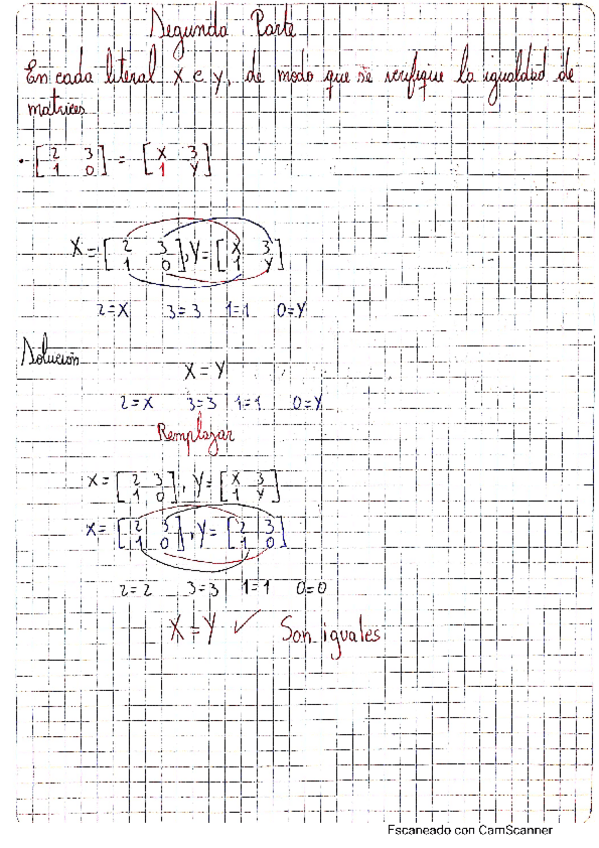 Segunda Parte
En cada literal x e y, de modo que se verifique la igualdad de
matrices
• [2 3] = [x 3]
[1 0] [1 y]
X = [2 3], Y = [x 3]
[1 0] [1 y]
2=X 3=3 1=1 0=Y
Solución
X = Y
2=X 3=3 1=1 0=Y
Remplazar
X = [2 3], Y = [x 3]
[1 0] [1 y]
X = [2 3], Y = [2 3]
[1 0] [1 0]
2=2 3=3 1=1 0=0
X = Y ✓ Son iguales
Escaneado con CamScanner